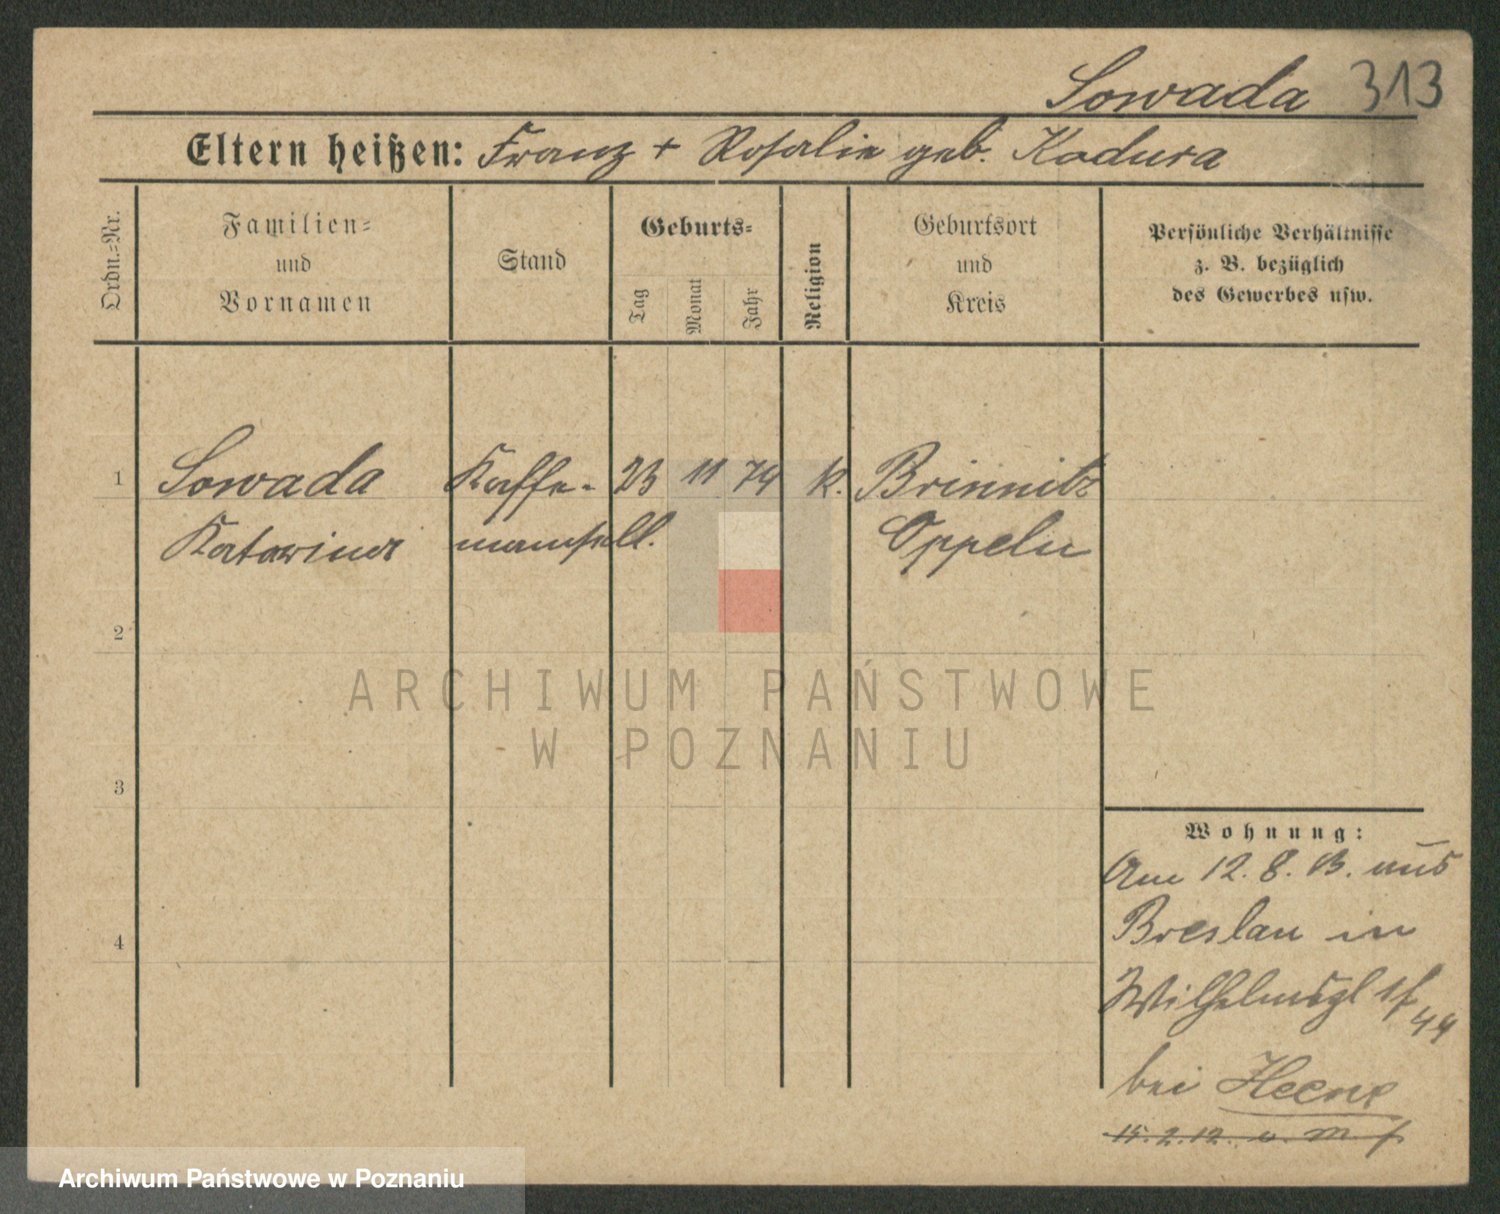 Sowada 313
Eltern heißen: Franz + Rosalie geb. Kadura
Ordn.-Nr.
Familien-
und
Vornamen
Stand
Geburts-
Tag
Monat
Jahr
Religion
Geburtsort
und
Kreis
Persönliche Verhältnisse
z. B. bezüglich
des Gewerbes usw.
1 Sowada Kaffe- 23 11 74 k. Brinnitz
Katarina mamsell. Oppeln
2
ARCHIWUM PAŃSTWOWE
W POZNANIU
3
Wohnung:
Am 12. 8. 13. aus
Breslau in
4
Wilhelmspl
bei Heene
15.2.12
Archiwum Państwowe w Poznaniu